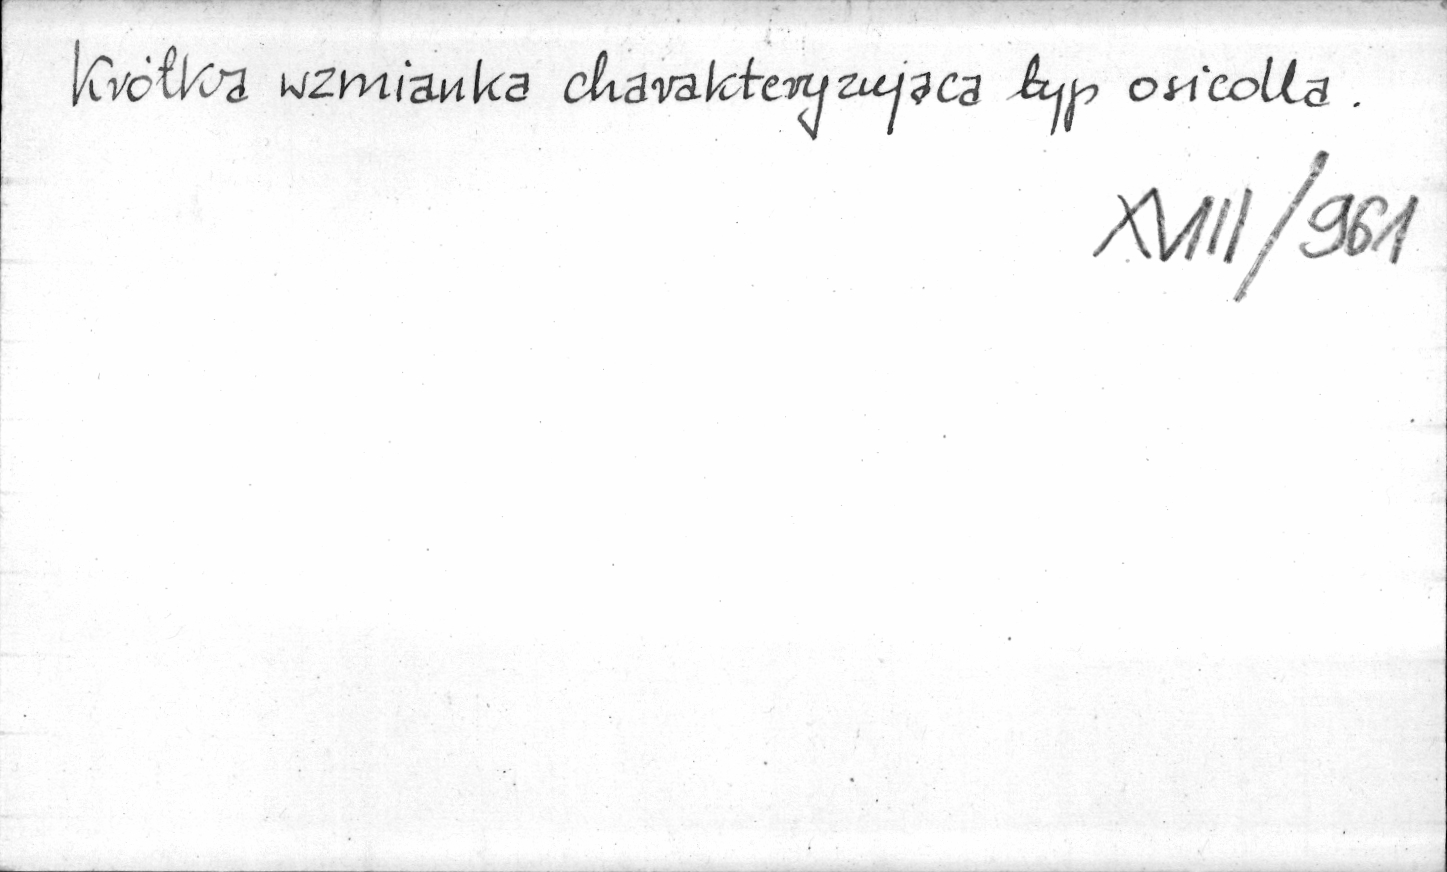 Krótka wzmianka charakteryzująca typ osicolla.
XVIII/961